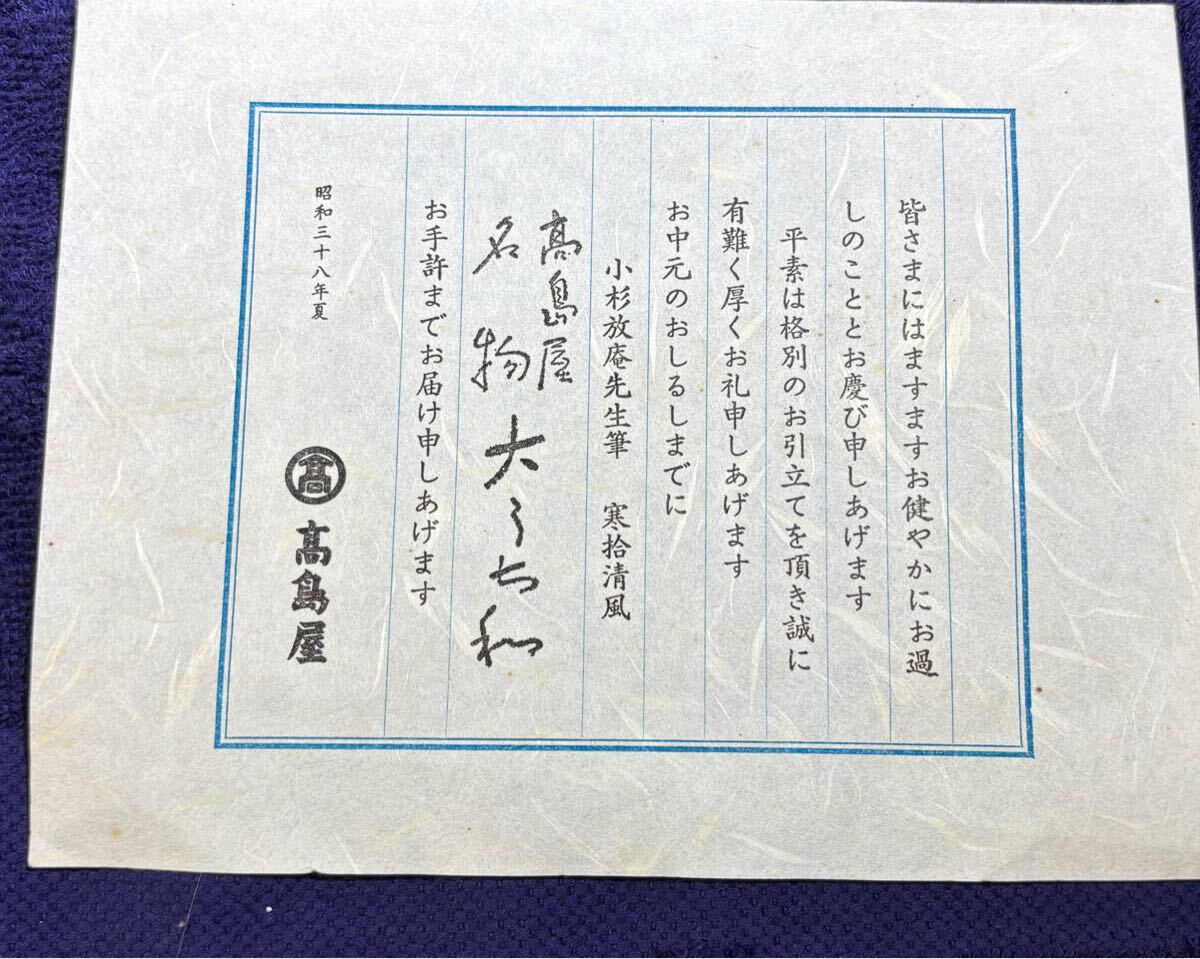 皆さまにはますますお健やかにお過
しのこととお慶び申しあげます
平素は格別のお引立てを頂き誠に
有難く厚くお礼申しあげます
お中元のおしるしまでに
小杉放庵先生筆　寒拾清風
髙島屋
名物大うちわ
お手許までお届け申しあげます
昭和三十八年夏
髙 髙島屋